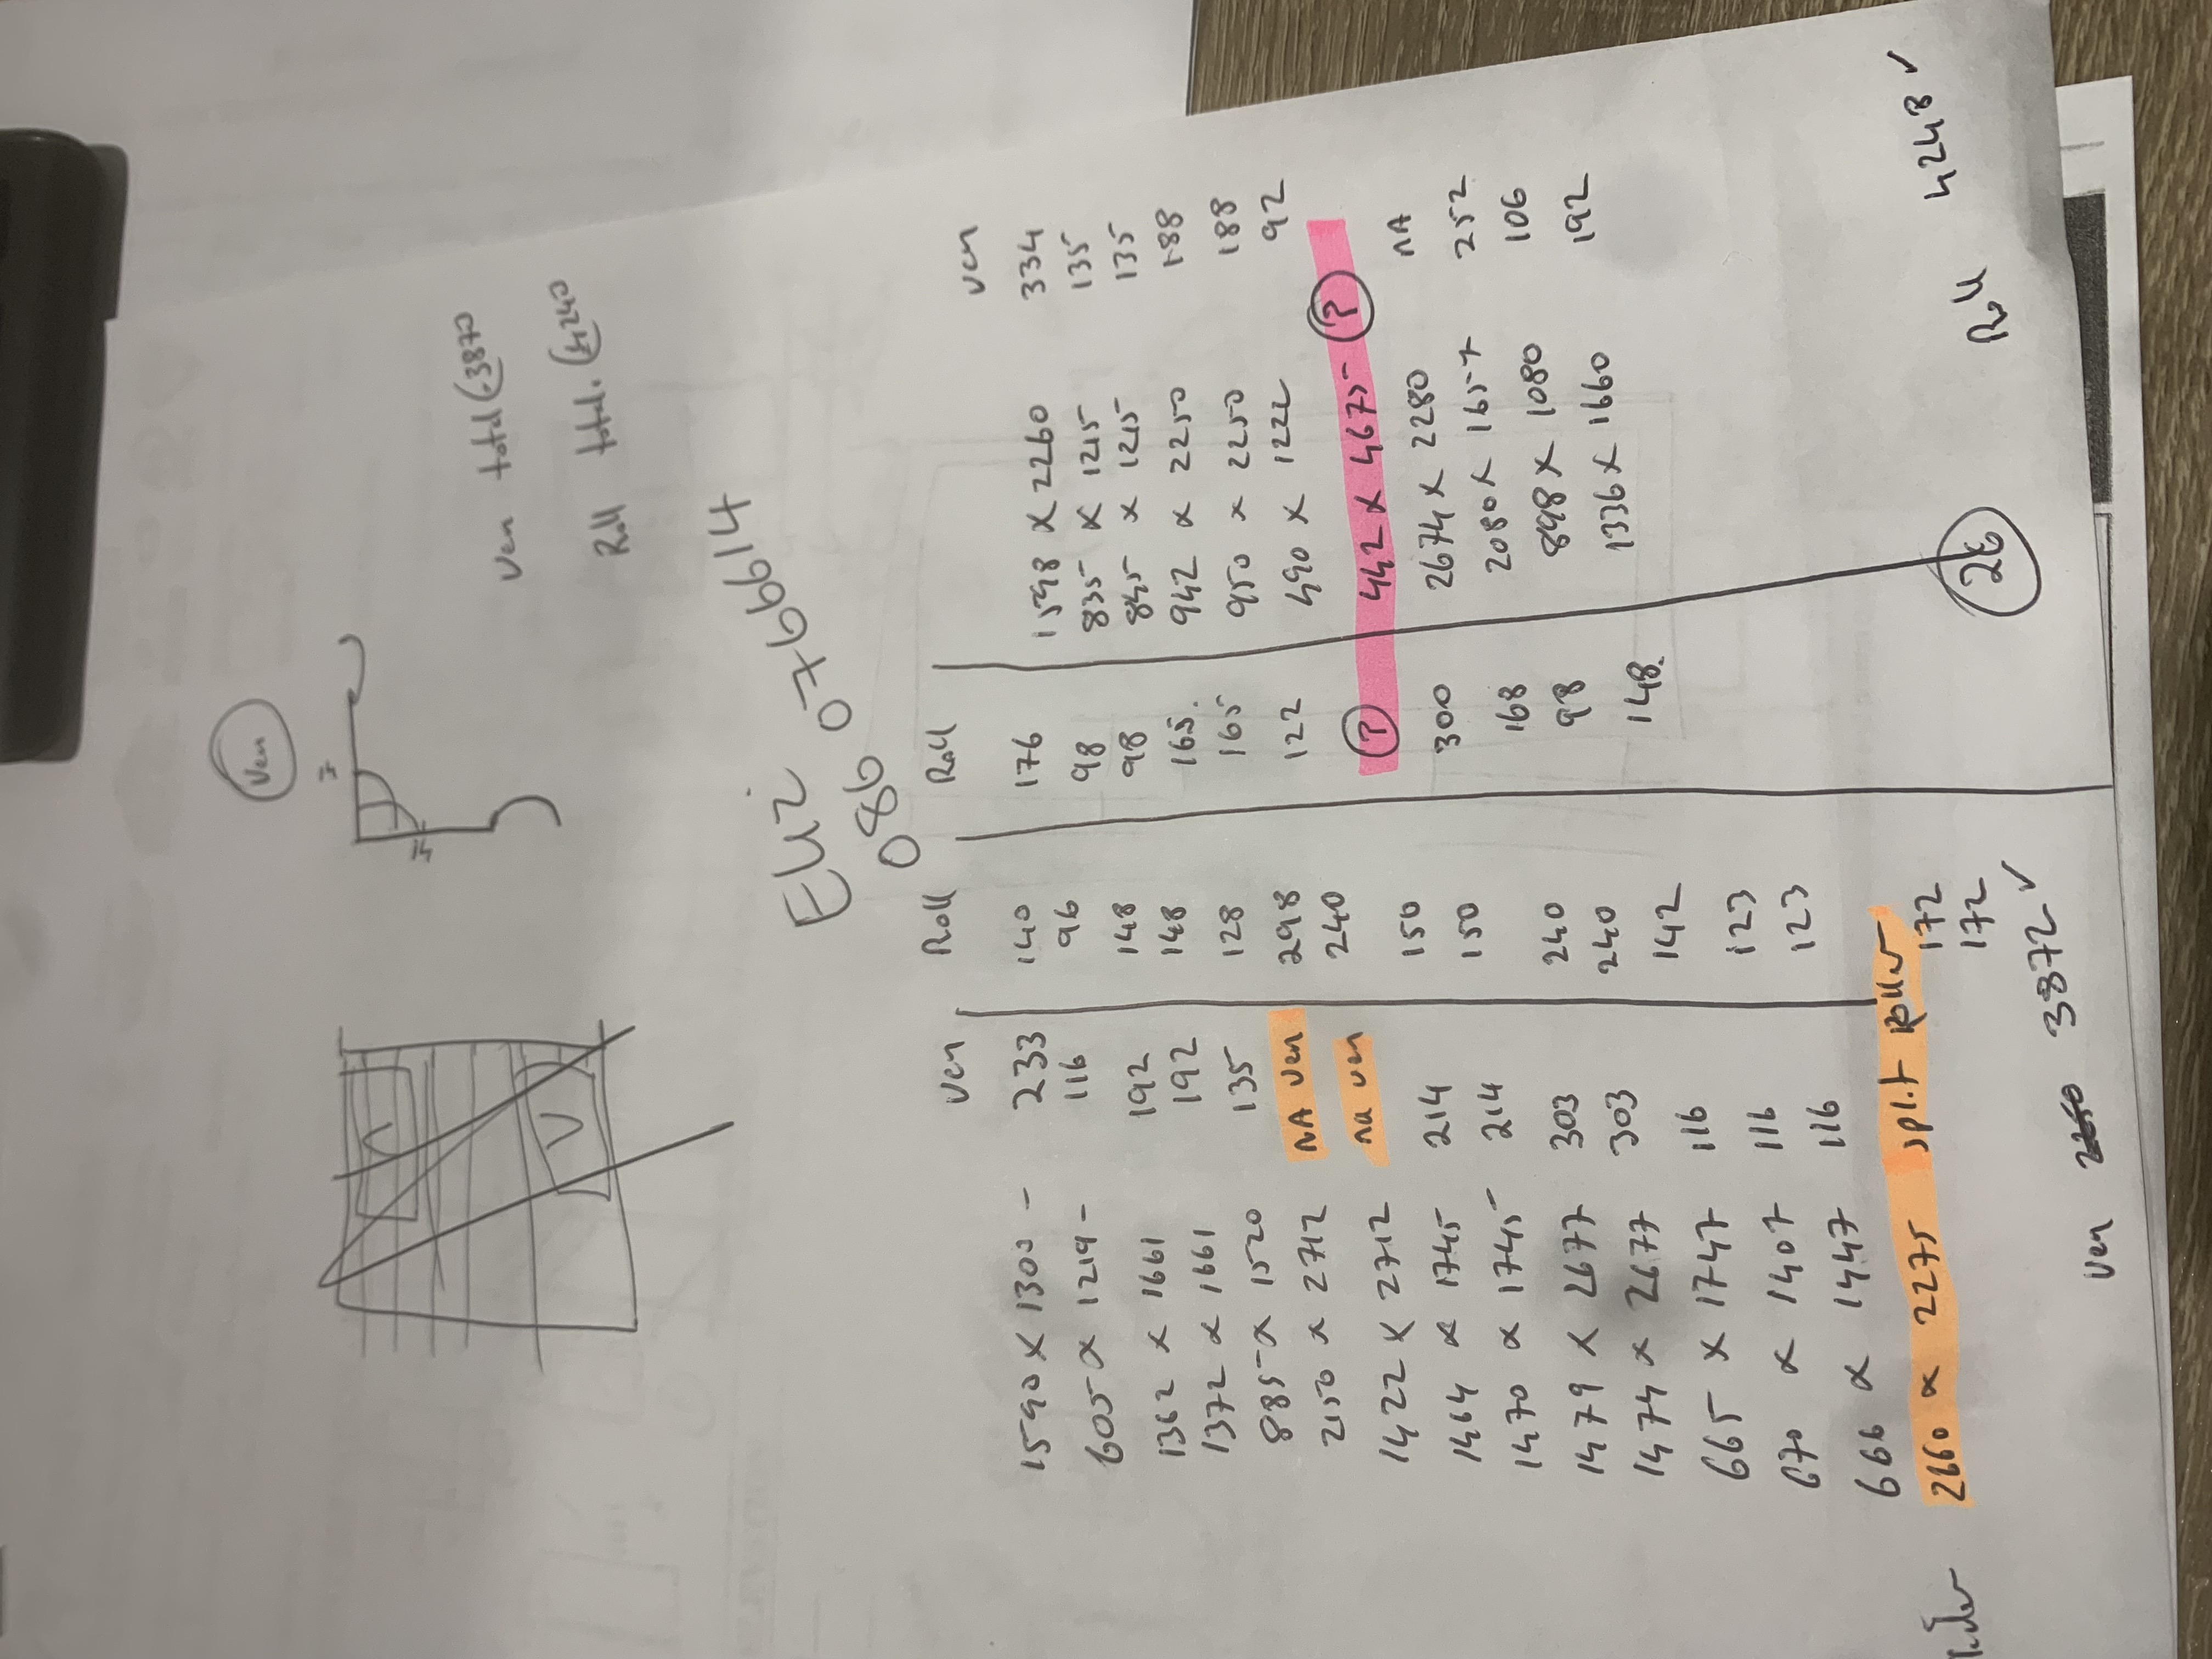 Ven
Ven total (3870)
Roll total. (4240)
0766614
086
Ven Roll Roll Ven
1590 x 1300 - 233 140 176 1598 x 2260 334
605 x 1219 - 116 96 98 835 x 1215 135
1362 x 1661 192 148 98 845 x 1215 135
1372 x 1661 192 148 165. 942 x 2250 188
885 x 1520 135 128 165 950 x 2250 188
2150 x 2712 NA Ven 298 122 490 x 1222 92
1422 x 2712 na ven 240 ? 442 x 4675 ?
1464 x 1745 214 150 300 2674 x 2280 NA
1470 x 1745 214 150 168 2080 x 1657 252
1479 x 2677 303 240 98 898 x 1080 106
1474 x 2677 303 240 148. 1336 x 1660 192
665 x 1747 116 142
670 x 1407 116 123
666 x 1447 116 123
2260 x 2275 split roller 172
172
26
Ven 3872 ✓ Roll 4248 ✓